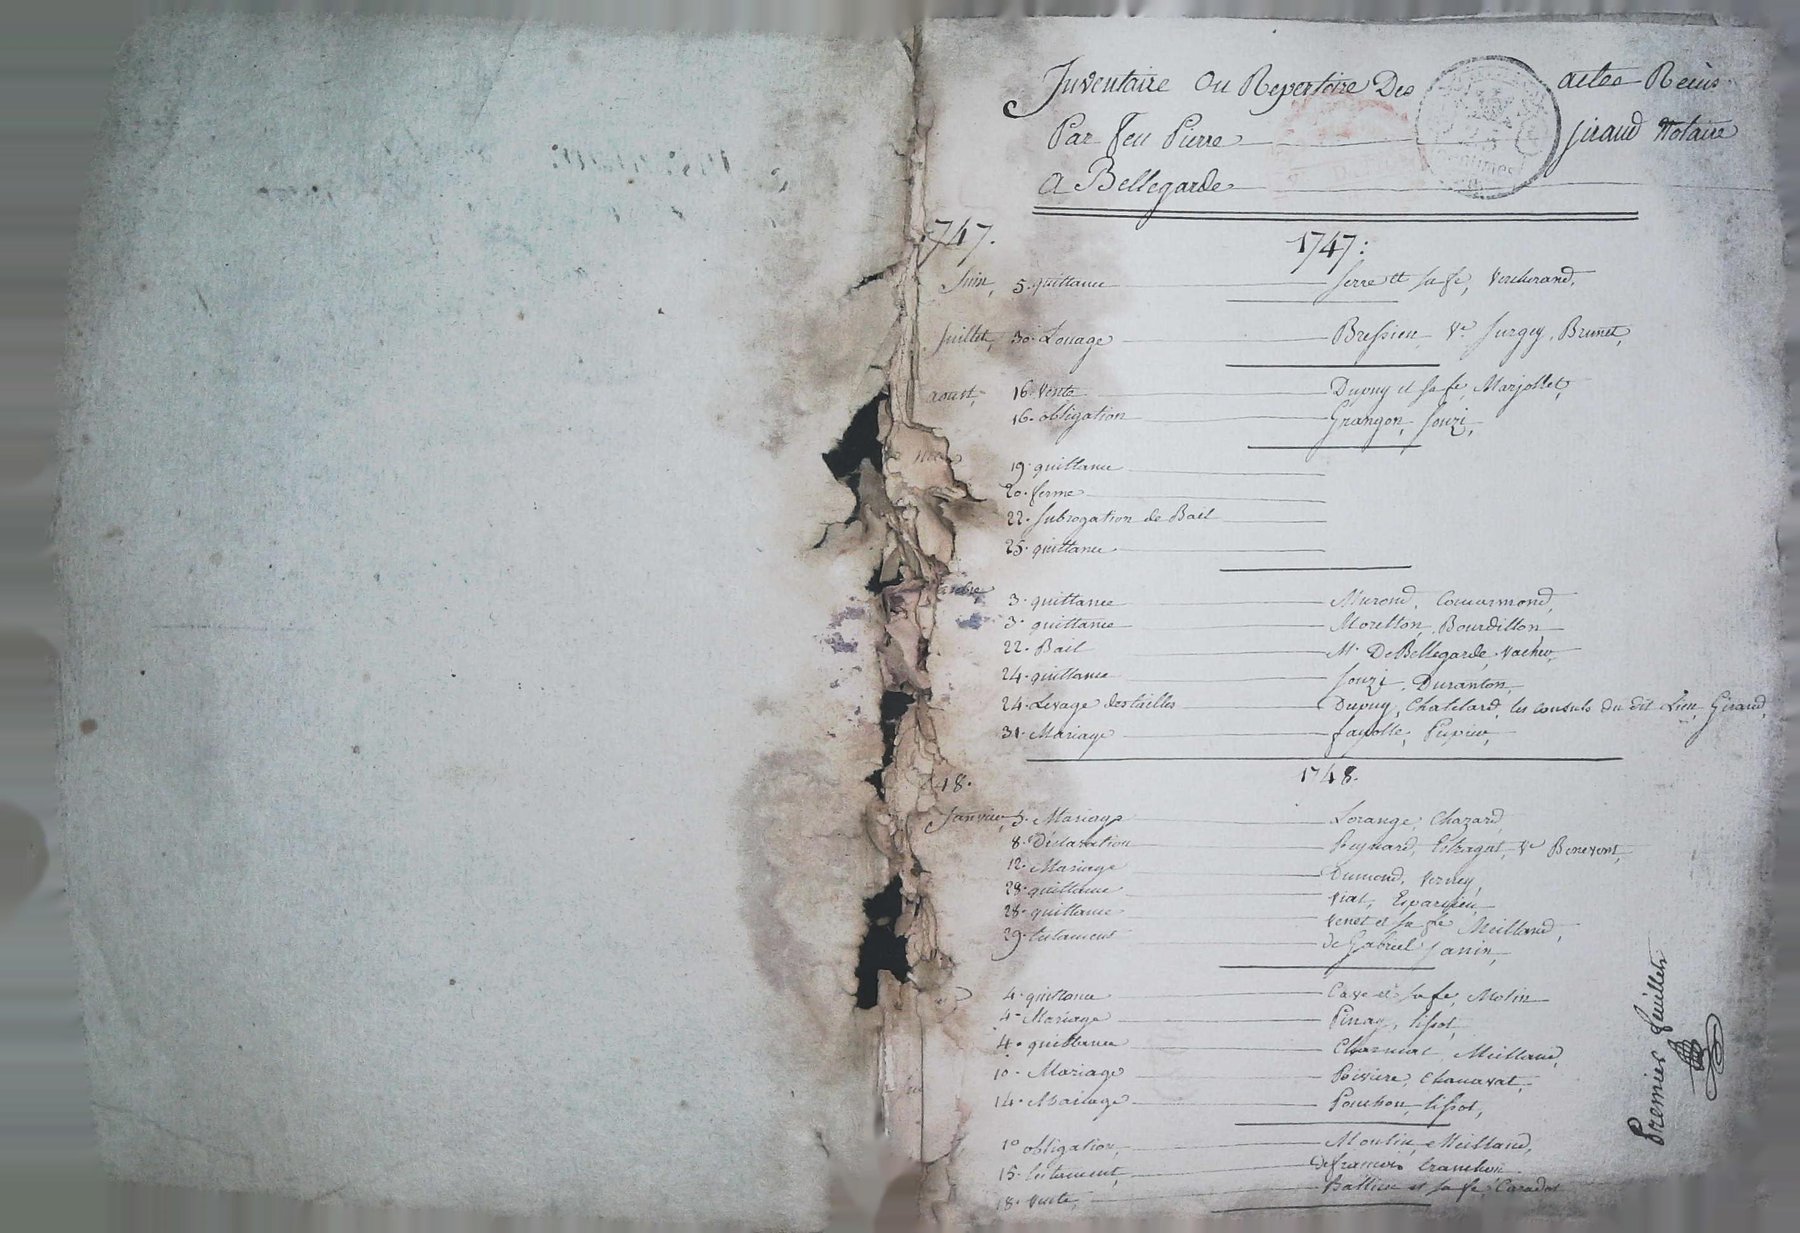 Inventaire ou Repertoire Des actes Reçus
Par feu Pierre Giraud Notaire
A Bellegarde
1747:
Juin, 5. quittance Serre et sa fe,
Juillet, 30. Louage Bressieu, Ve Brunet,
aoust, 16. Vente Dupuy et sa fe, Marjollet,
16. obligation Grangon, Jouzi,
19. quittance
20. ferme
22. Subrogation de Bail
25. quittance
3. quittance Comarmond,
3. quittance Morellon, Bourdillon,
22. Bail Mr. De Bellegarde, Vacher,
24. quittance Jouzi, Duranton,
24. Levage des tailles Dupuy, Chatelard, les consuls du dit Lieu, Giraud,
31. Mariage fayolle, Pupier,
1748.
Janvier, 5. Mariage Lorange, Chazard,
8. Déclaration Peynard, Estragat, Ve Benevent,
12. Mariage Dumond, Verney,
28. quittance Viat,
28. quittance Venet et sa fe Meilland,
29. testament de Gabriel Janin,
4. quittance Cave et sa fe, Molin
4. Mariage Pinay, tissot,
4. quittance Charmat, Meilland,
10. Mariage Riviere, Chanavat,
14. Mariage Ponchon, tissot,
1er obligation, Moulin, Meilland,
15. testament, De francois
18. Vente, et sa fe
Premier feuillet